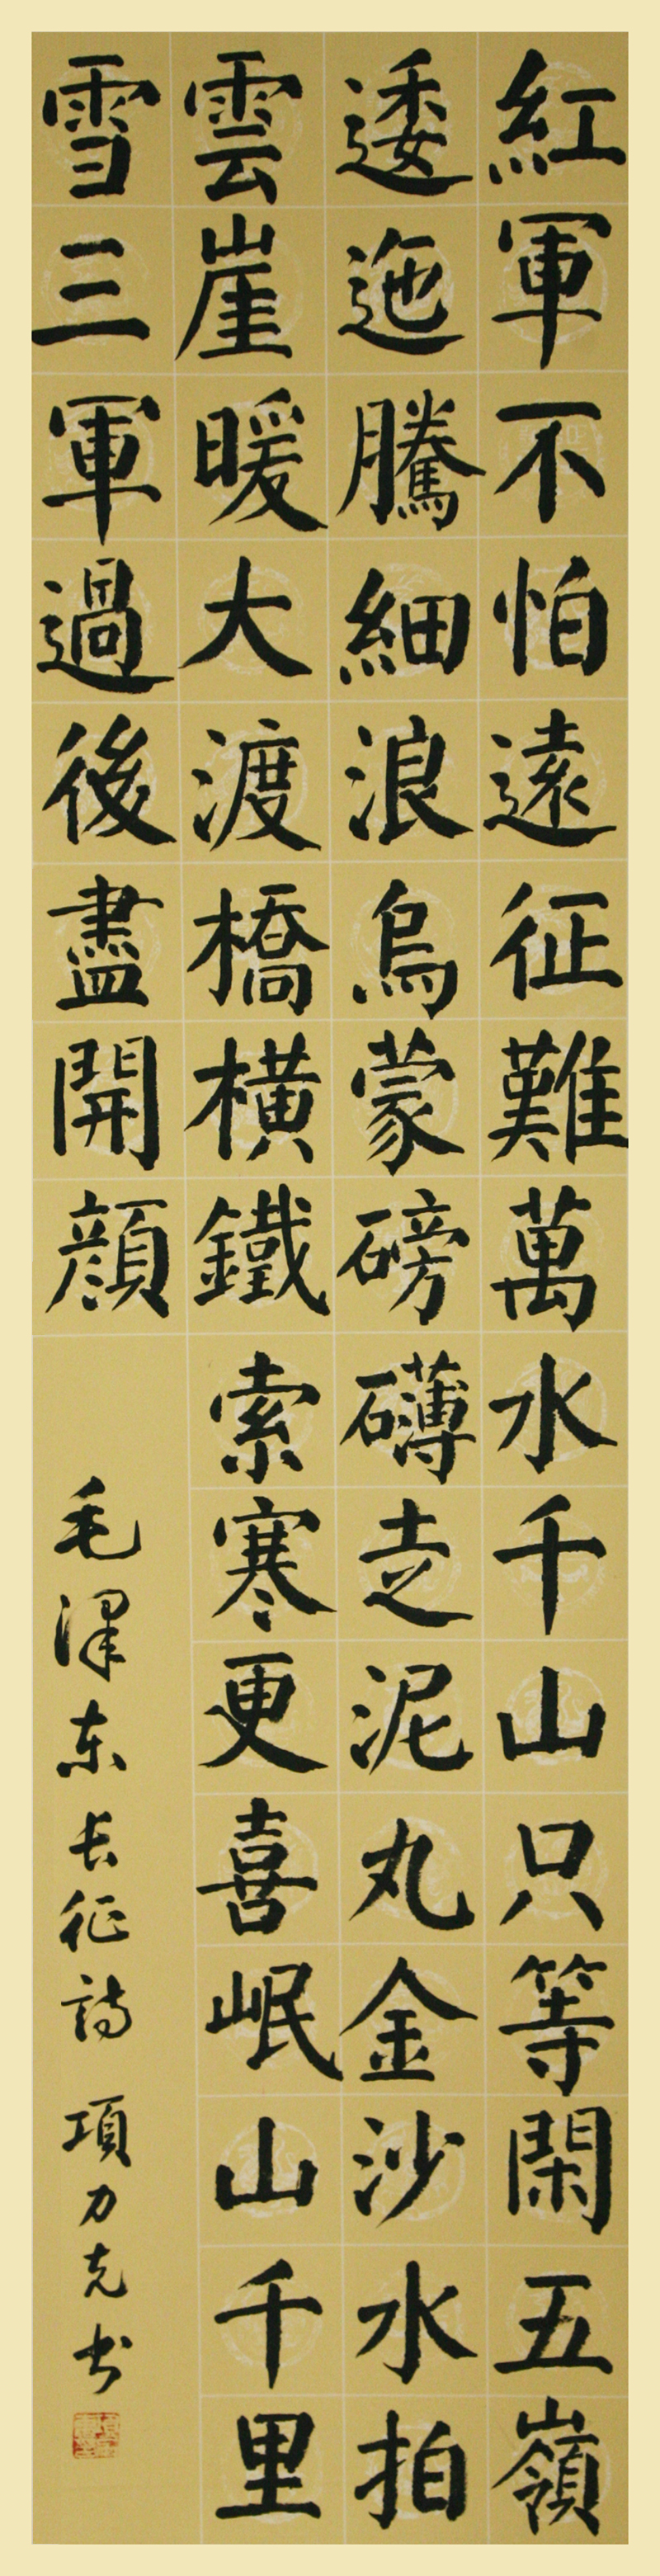 紅軍不怕遠征難萬水千山只等閑五嶺
逶迤騰細浪烏蒙磅礴走泥丸金沙水拍
雲崖暖大渡橋橫鐵索寒更喜岷山千里
雪三軍過後盡開顏
毛澤东长征詩 項力克书